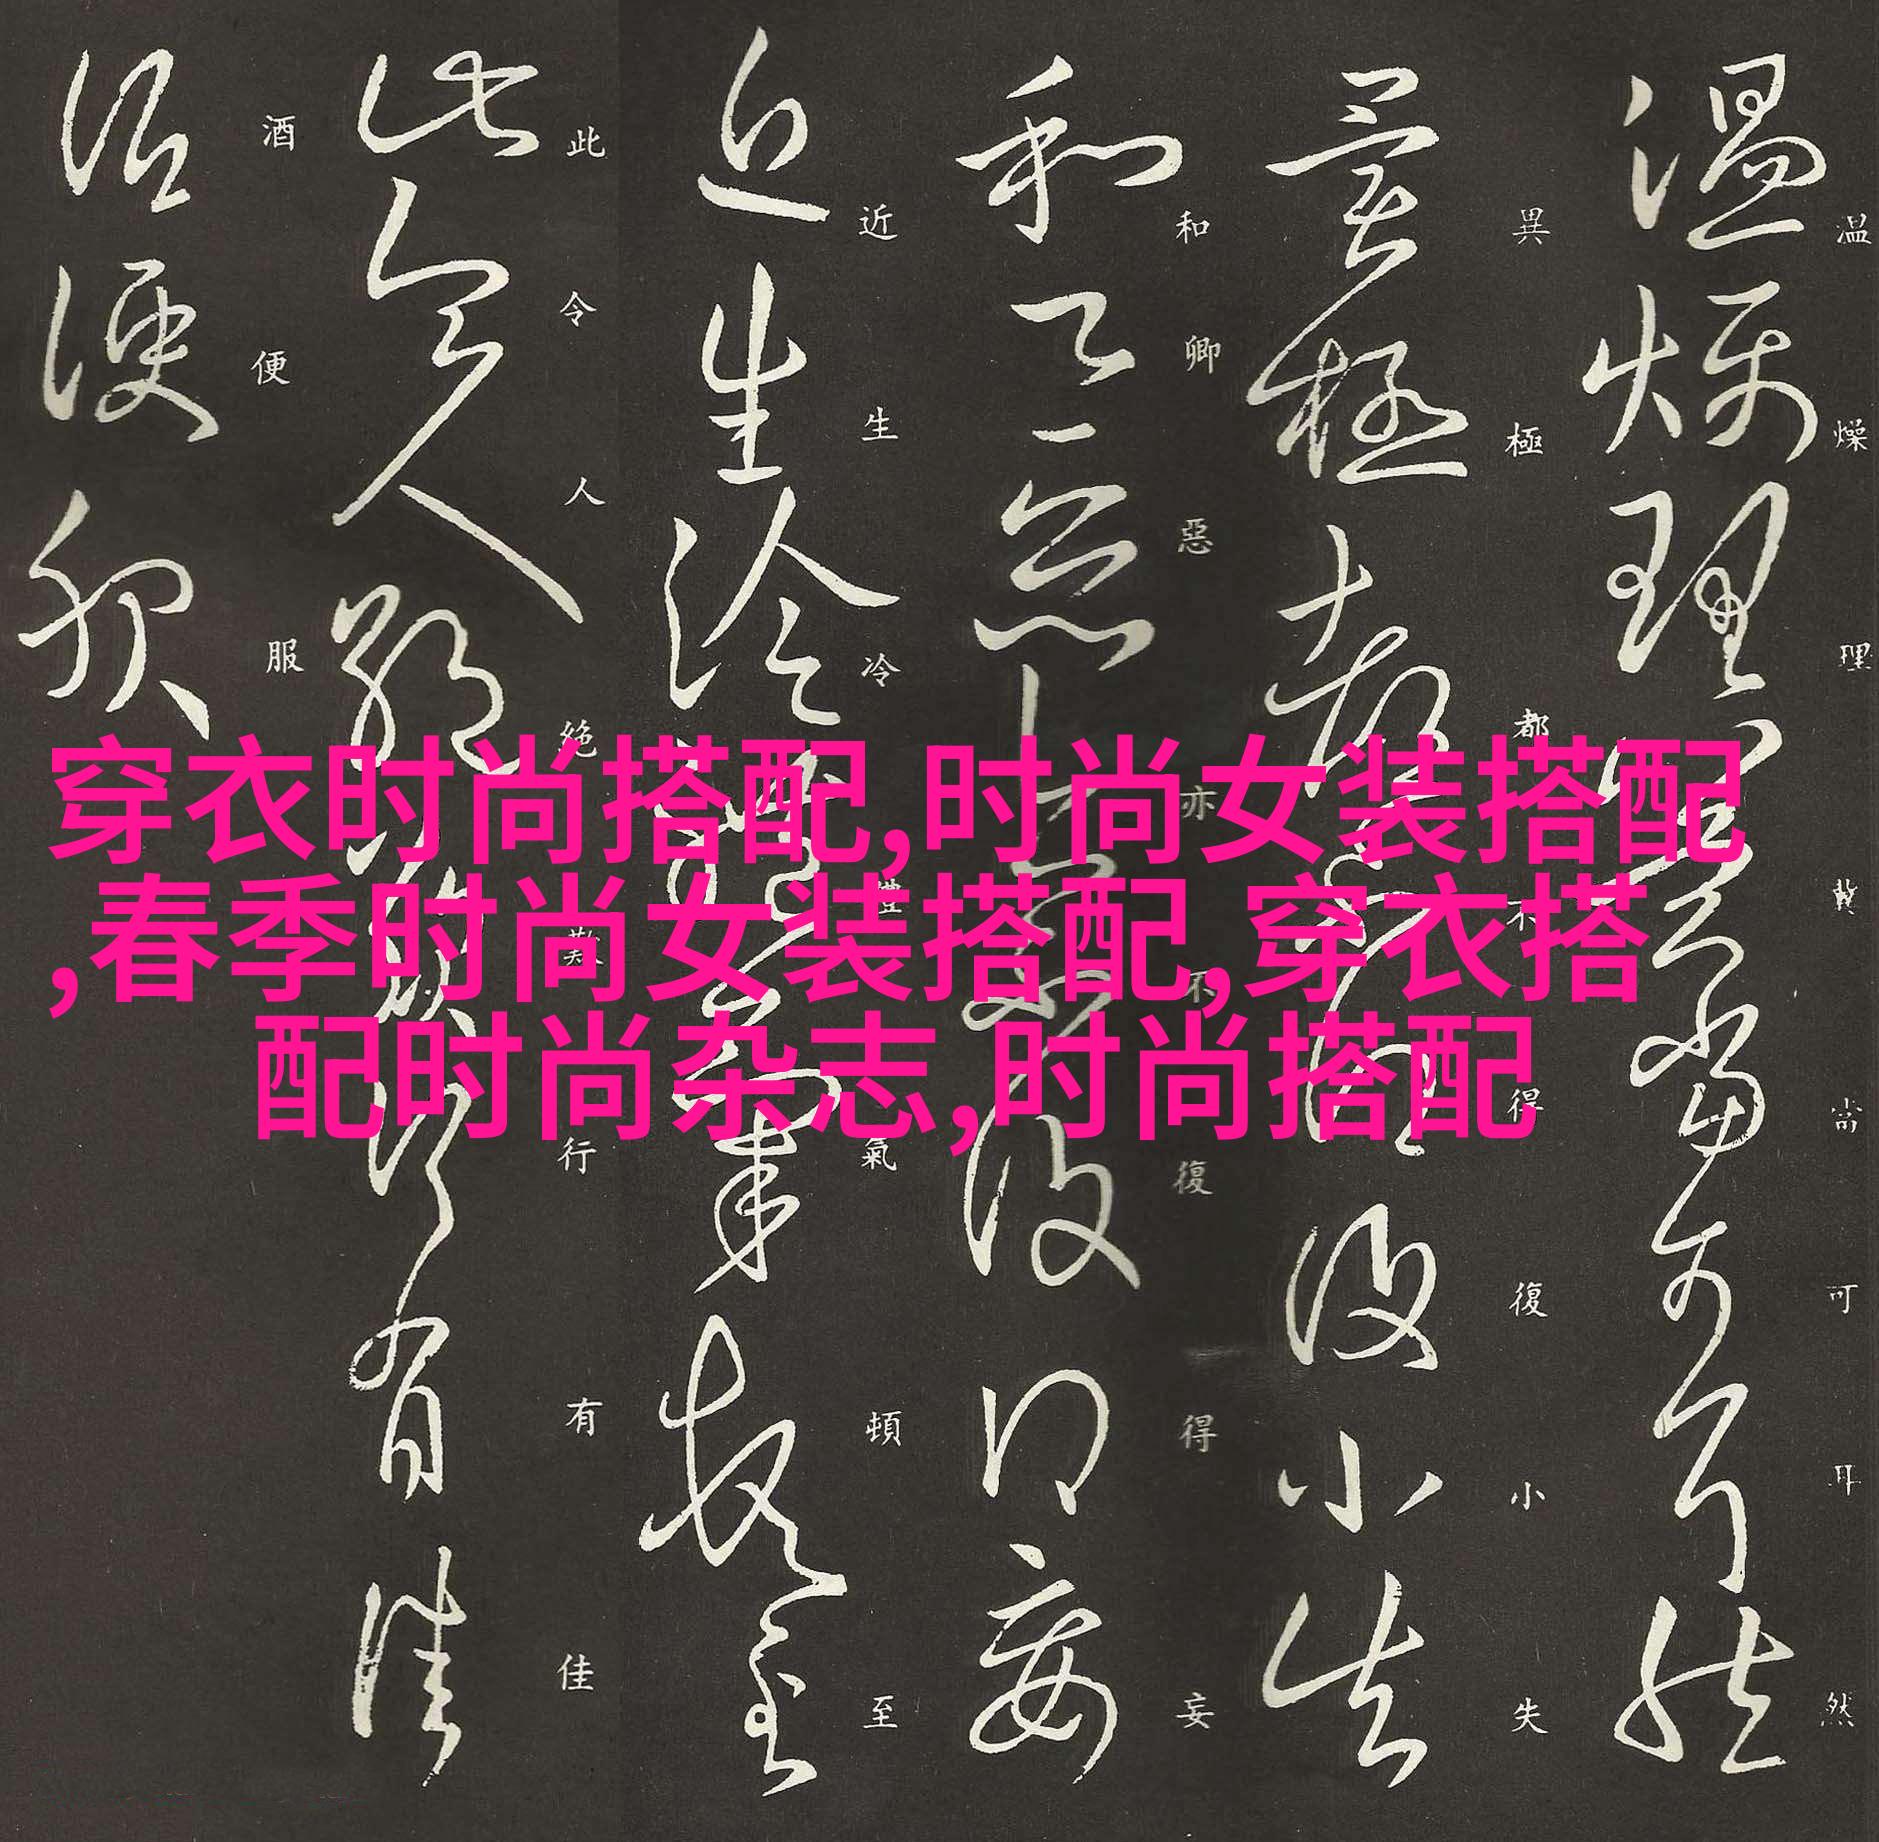 温燥理冀當可耳然
異極都不得復小失
和卿惡亦不復得妄
近生冷體氣頓至
此令人絶歎行有佳
酒便服
穿衣时尚搭配,时尚女装搭配
,春季时尚女装搭配,穿衣搭
配时尚杂志,时尚搭配